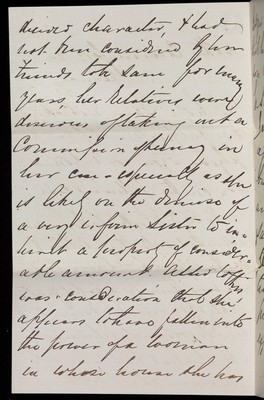 decided character, & had
not been considered by her
friends to be sane for many
years, her relatives were
desirous of taking out a
Commission of lunacy in
her case - especially as she
is likely on the demise of
a very infirm Sister to in-
herit a property of consider-
able amount. Added to this
was consideration that she
appears to have fallen into
the power of a Woman
in whose house she has